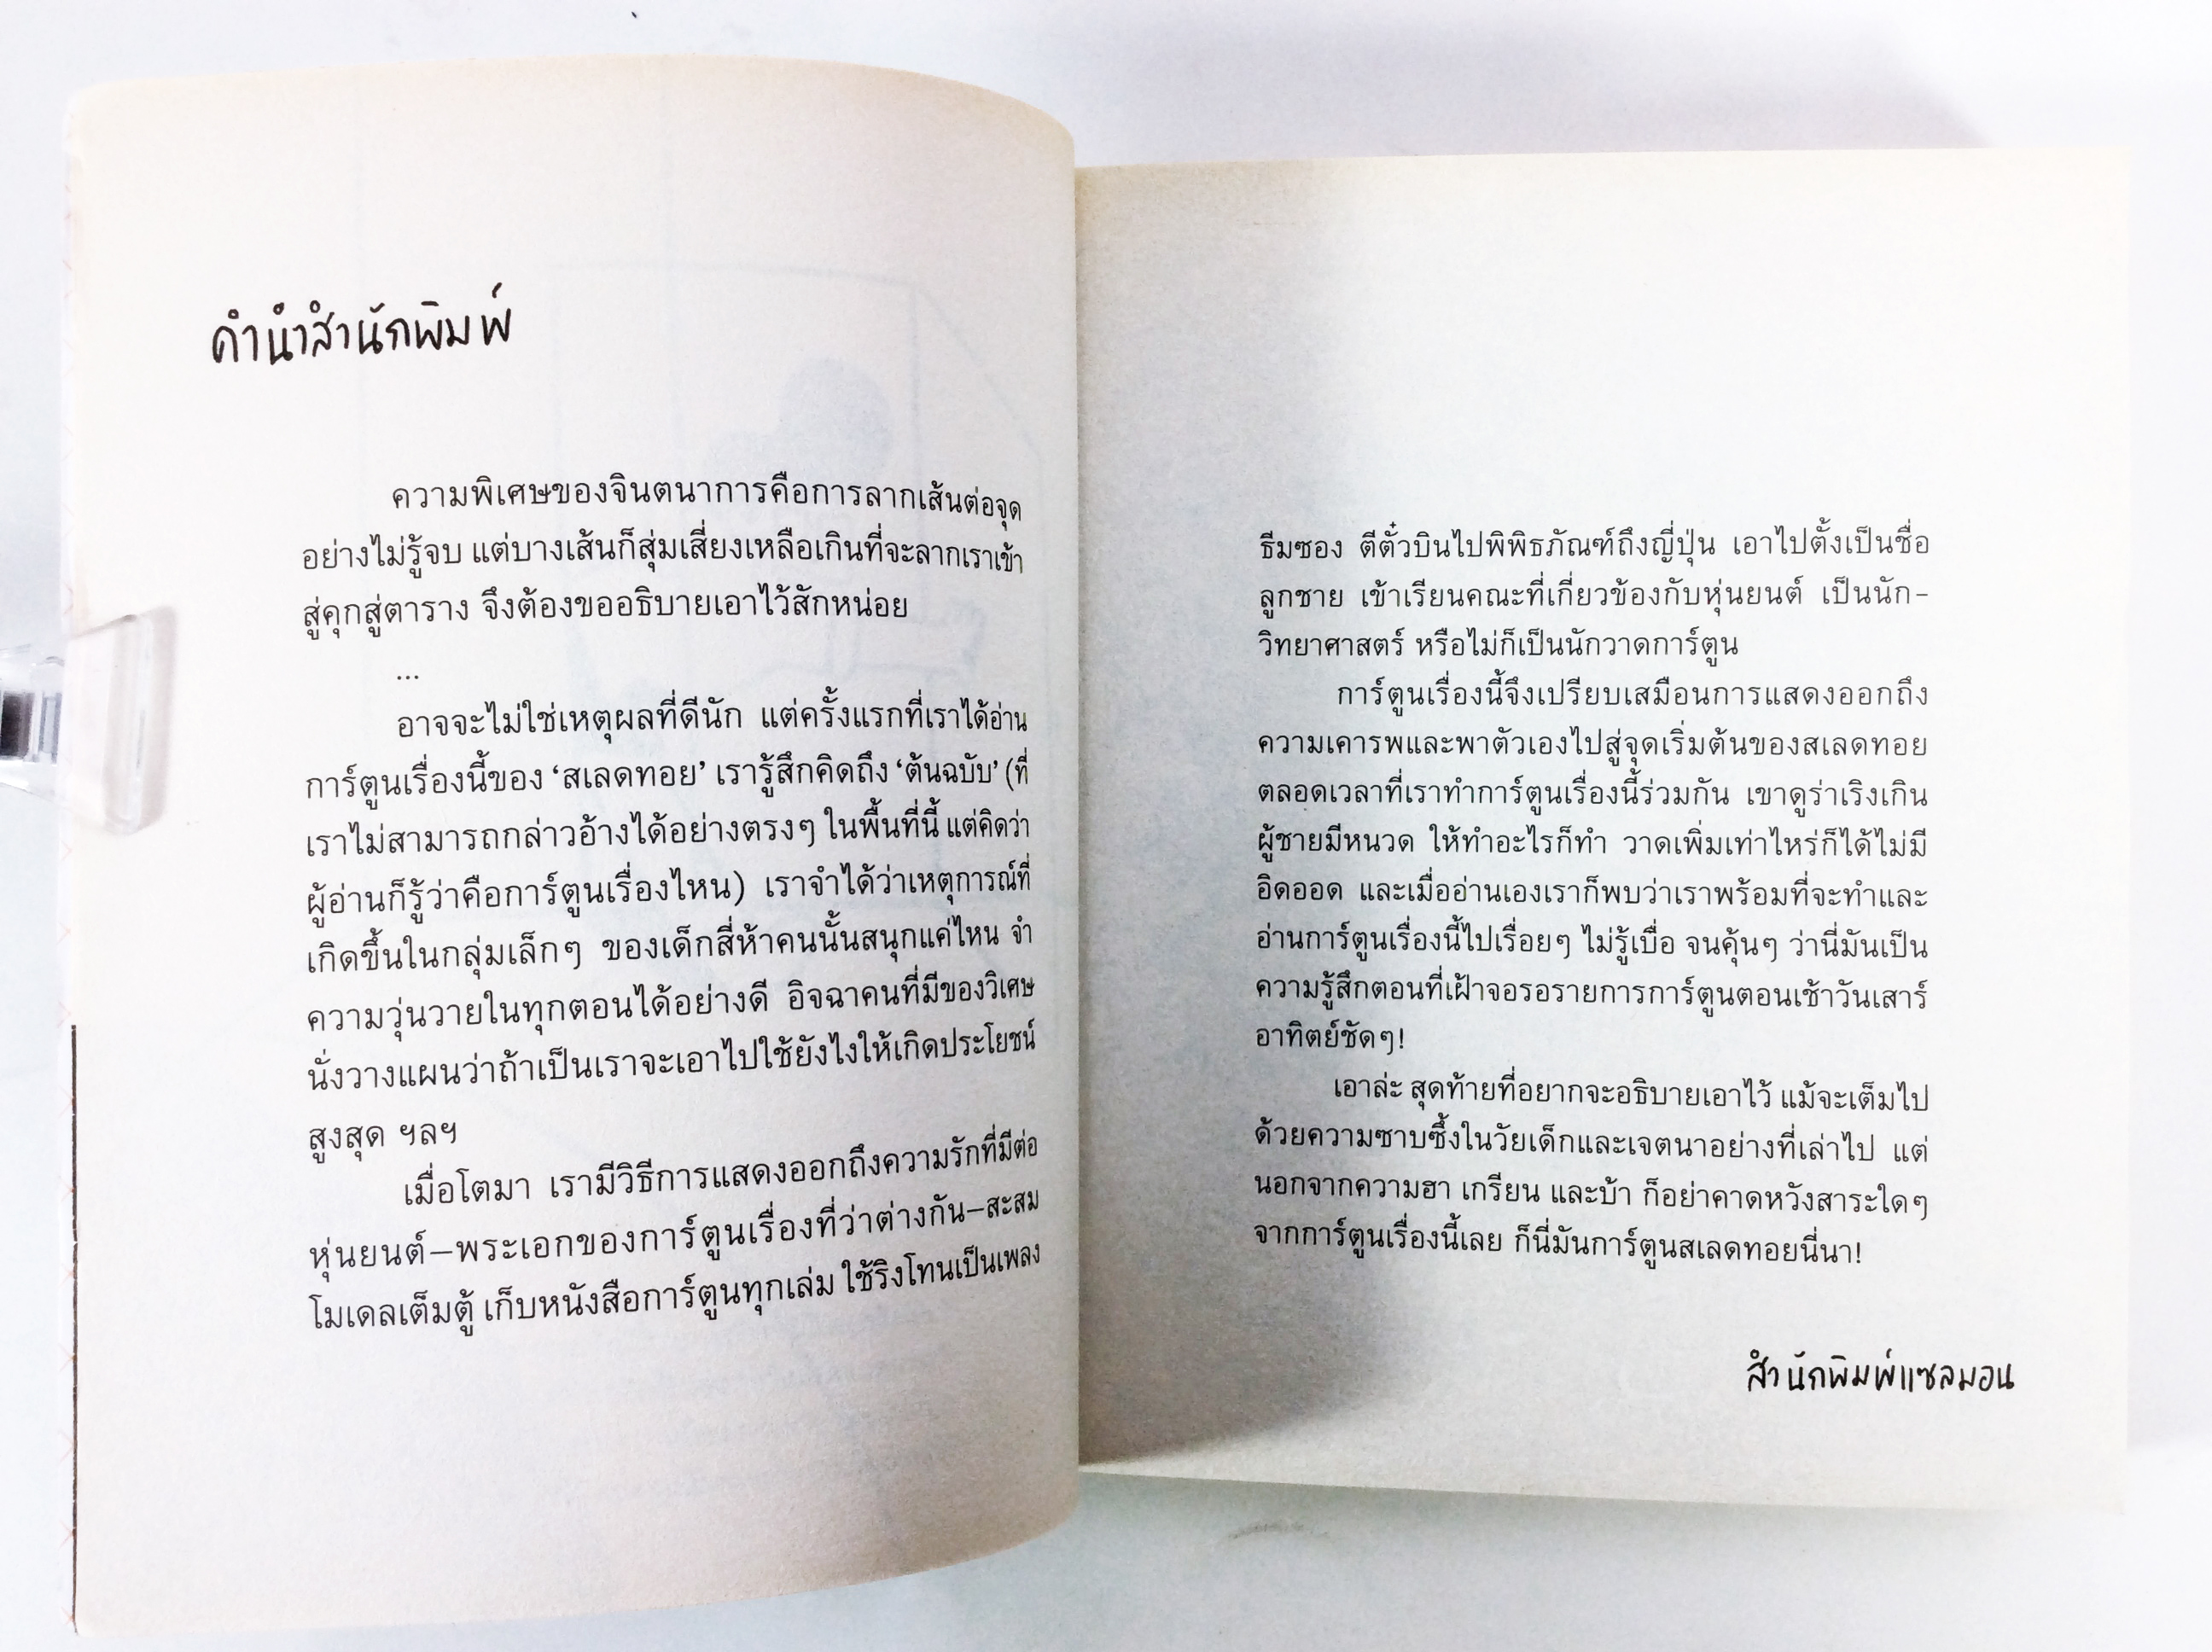 คำนำสำนักพิมพ์
ความพิเศษของจินตนาการคือการลากเส้นต่อจุด
อย่างไม่รู้จบ แต่บางเส้นก็สุ่มเสี่ยงเหลือเกินที่จะลากเราเข้า
สู่คุกสู่ตาราง จึงต้องขออธิบายเอาไว้สักหน่อย
...
อาจจะไม่ใช่เหตุผลที่ดีนัก แต่ครั้งแรกที่เราได้อ่าน
การ์ตูนเรื่องนี้ของ ‘สเลดทอย’ เรารู้สึกคิดถึง ‘ต้นฉบับ’ (ที่
เราไม่สามารถกล่าวอ้างได้อย่างตรงๆ ในพื้นที่นี้ แต่คิดว่า
ผู้อ่านก็รู้ว่าคือการ์ตูนเรื่องไหน) เราจำได้ว่าเหตุการณ์ที่
เกิดขึ้นในกลุ่มเล็กๆ ของเด็กสี่ห้าคนนั้นสนุกแค่ไหน จำ
ความวุ่นวายในทุกตอนได้อย่างดี อิจฉาคนที่มีของวิเศษ
นั่งวางแผนว่าถ้าเป็นเราจะเอาไปใช้ยังไงให้เกิดประโยชน์
สูงสุด ฯลฯ
เมื่อโตมา เรามีวิธีการแสดงออกถึงความรักที่มีต่อ
หุ่นยนต์–พระเอกของการ์ตูนเรื่องที่ว่าต่างกัน–สะสม
โมเดลเต็มตู้ เก็บหนังสือการ์ตูนทุกเล่ม ใช้ริงโทนเป็นเพลง
ธีมซอง ตีตั๋วบินไปพิพิธภัณฑ์ถึงญี่ปุ่น เอาไปตั้งเป็นชื่อ
ลูกชาย เข้าเรียนคณะที่เกี่ยวข้องกับหุ่นยนต์ เป็นนัก-
วิทยาศาสตร์ หรือไม่ก็เป็นนักวาดการ์ตูน
การ์ตูนเรื่องนี้จึงเปรียบเสมือนการแสดงออกถึง
ความเคารพและพาตัวเองไปสู่จุดเริ่มต้นของสเลดทอย
ตลอดเวลาที่เราทำการ์ตูนเรื่องนี้ร่วมกัน เขาดูร่าเริงเกิน
ผู้ชายมีหนวด ให้ทำอะไรก็ทำ วาดเพิ่มเท่าไหร่ก็ได้ไม่มี
อิดออด และเมื่ออ่านเองเราก็พบว่าเราพร้อมที่จะทำและ
อ่านการ์ตูนเรื่องนี้ไปเรื่อยๆ ไม่รู้เบื่อ จนคุ้นๆ ว่านี่มันเป็น
ความรู้สึกตอนที่เฝ้าจอรอรายการการ์ตูนตอนเช้าวันเสาร์
อาทิตย์ชัดๆ!
เอาล่ะ สุดท้ายที่อยากจะอธิบายเอาไว้ แม้จะเต็มไป
ด้วยความซาบซึ้งในวัยเด็กและเจตนาอย่างที่เล่าไป แต่
นอกจากความฮา เกรียน และบ้า ก็อย่าคาดหวังสาระใดๆ
จากการ์ตูนเรื่องนี้เลย ก็นี่มันการ์ตูนสเลดทอยนี่นา!
สำนักพิมพ์แซลมอน